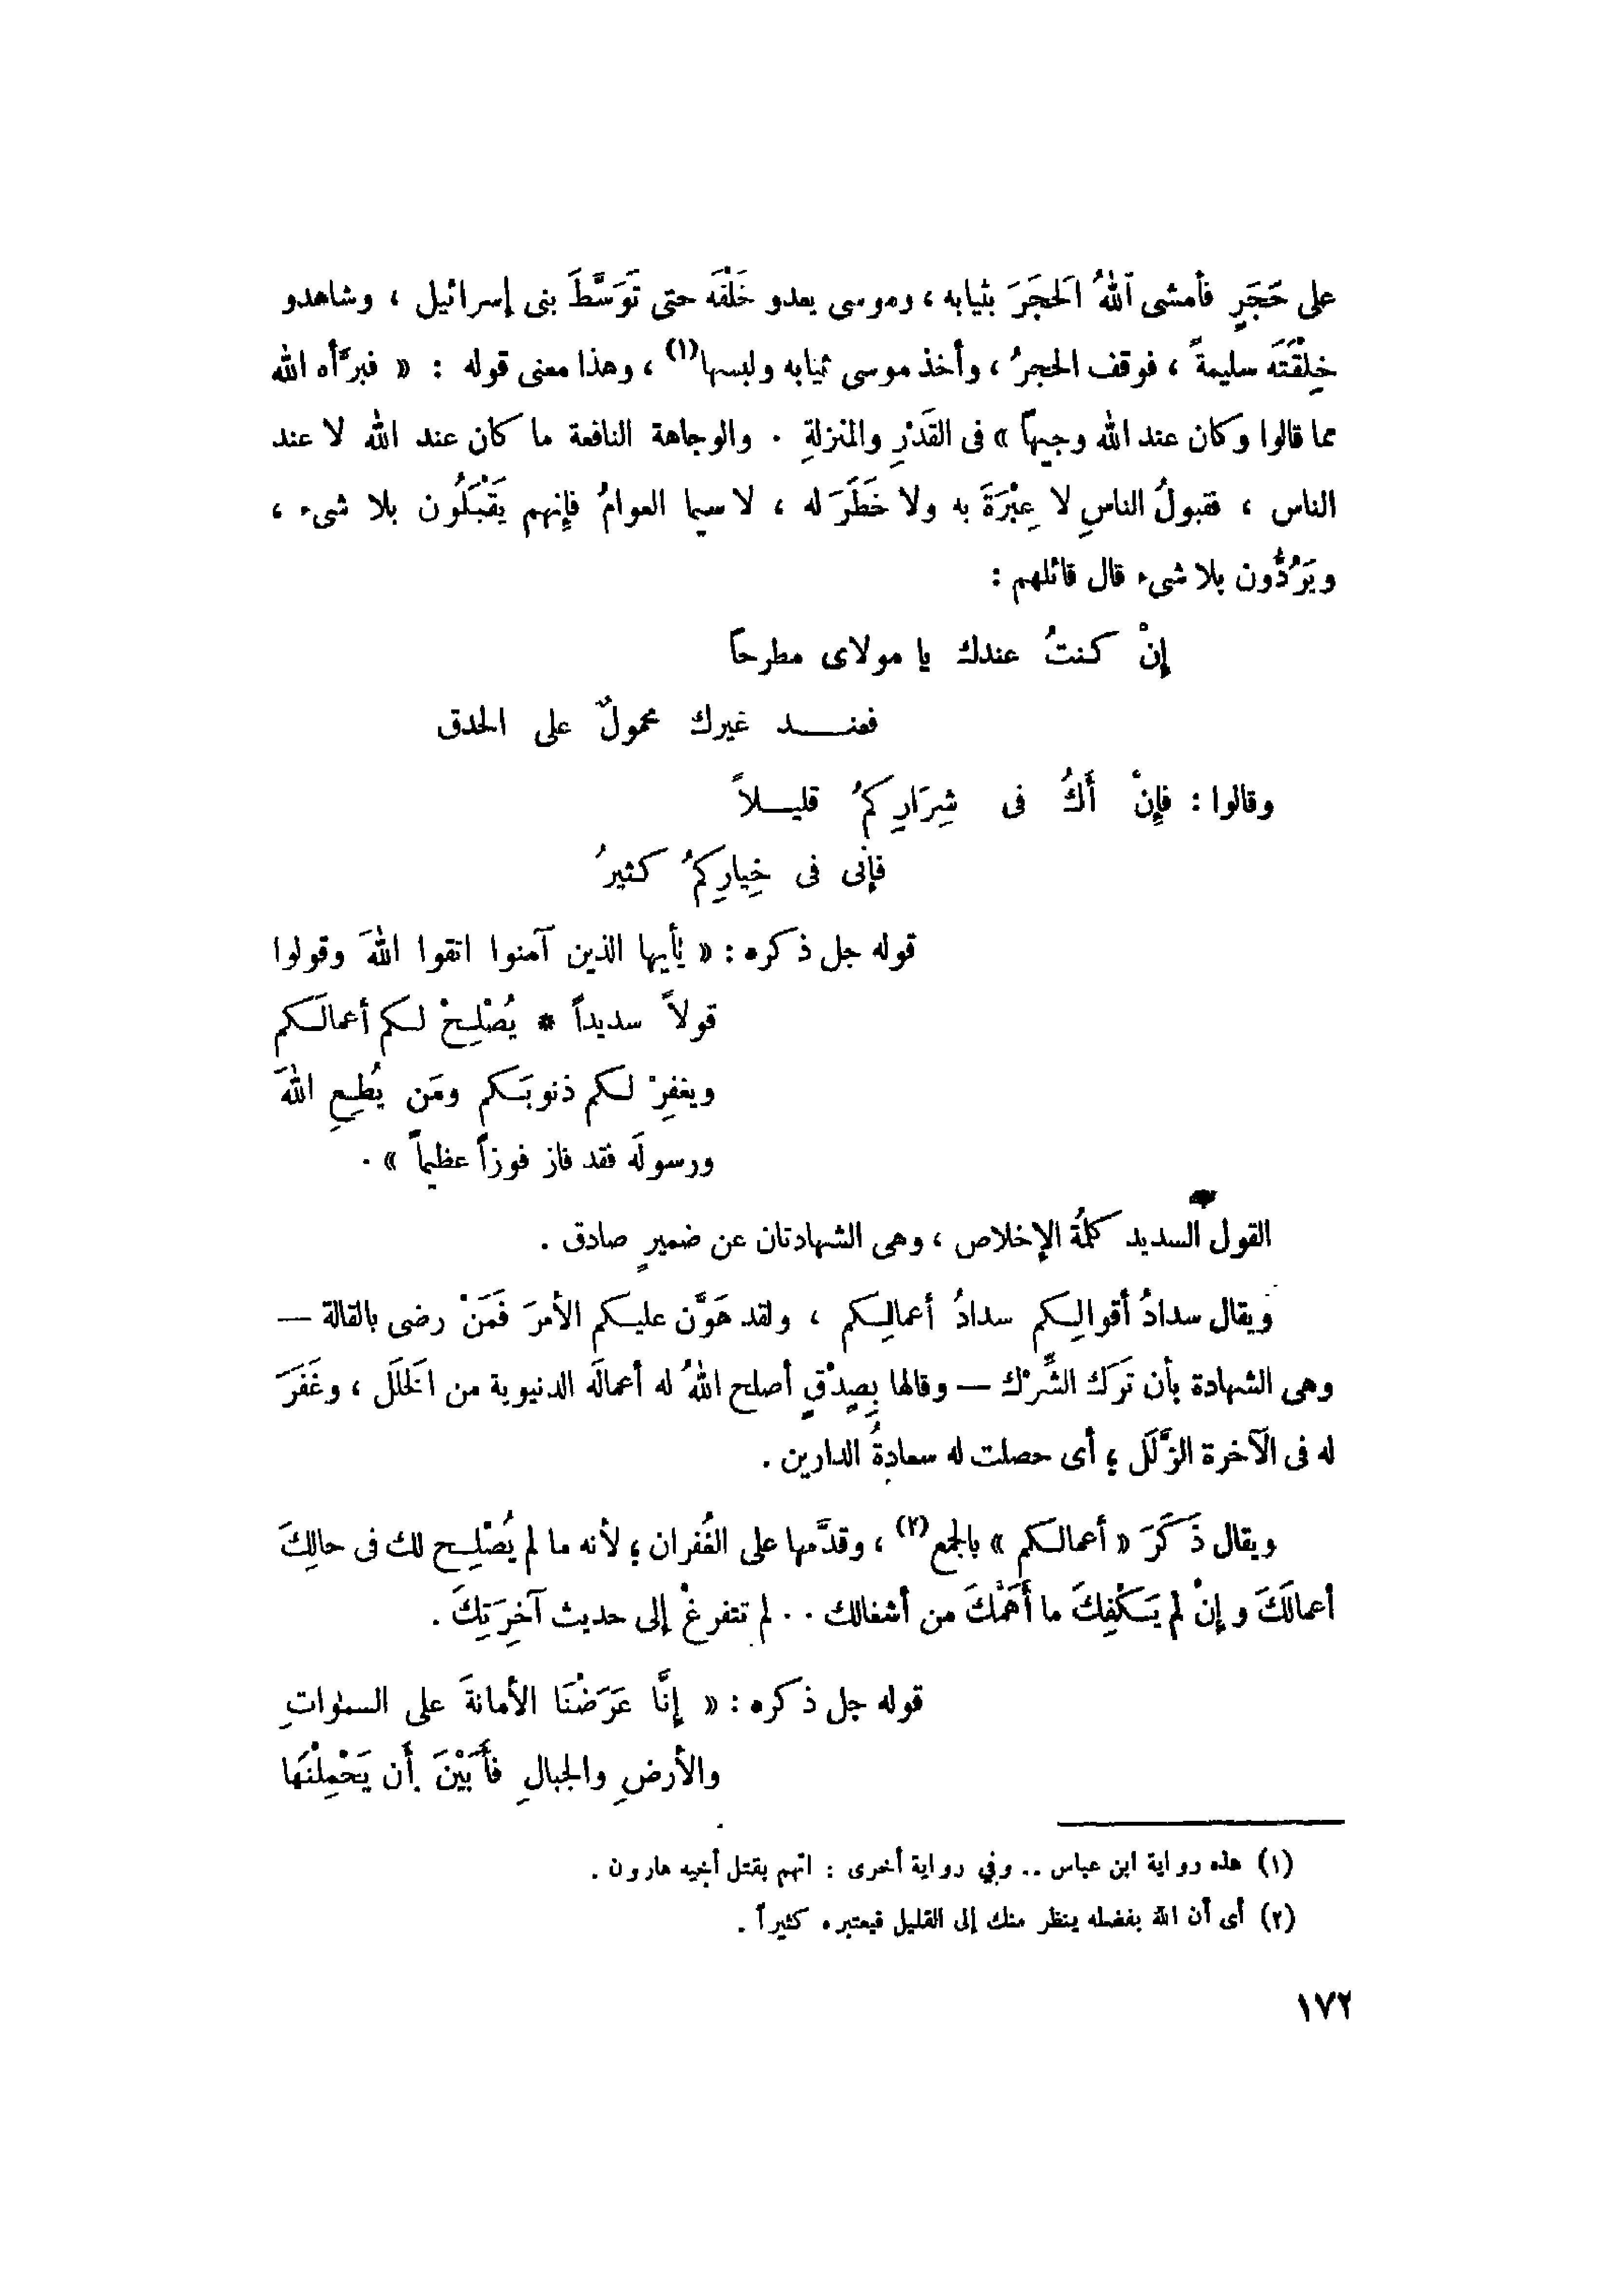 على حَجَرٍ فأمشى اللهُ الَحجَرَ بثيابه ، وموسى يعدو خَلْفَه حتى تَوَسَّطَ بنى إسرائيل ، وشاهدو
خِلْقَتَه سليمةً ، فوقف الحجرُ ، وأخذ موسى ثيابه ولبسها(١) ، وهذا معنى قوله : « فبرَّأه الله
مما قالوا وكان عند الله وجيهاً » فى القَدْرِ والمنزلةِ . والوجاهة النافعة ما كان عند الله لا عند
الناس ، فقبولُ الناسِ لا عِبْرَةَ به ولا خَطَرَ له ، لا سيما العوامُ فإِنهم يَقْبَلُون بلا شىء ،
ويَرُدُّون بلا شىء قال قائلهم :
إِنْ كنتُ عندك يا مولاى مطرحاً
فعنـــد غيرك محمولٌ على الحدق
وقالوا : فإِنْ أَكُ فى شِرَارِكمُ قليـلاً
فإنى فى خِيارِكمُ كثيرُ
قوله جل ذكره : « يٰأيها الذين آمنوا اتقوا اللهَ وقولوا
قولاً سديداً * يُصْلِحْ لكم أعمالَكم
ويغفِرْ لكم ذنوبَكم ومَن يُطِعِ اللهَ
ورسولَه فقد فاز فوزاً عظيماً » .
القول السديد كلمةُ الإخلاص ، وهى الشهادتان عن ضميرٍ صادق .
ويقال سدادُ أقوالِكم سدادُ أعمالِكم ، ولقد هَوَّن عليكم الأمرَ فَمَنْ رضى بالقالة —
وهى الشهادة بأن تَرَكَ الشِّرْك — وقالها بِصِدْقٍ أصلح اللهُ له أعمالَه الدنيوية من الَخلَل ، وغَفَرَ
له فى الآخرة الزَّلَل ؛ أى حصلت له سعادةُ الدارين .
ويقال ذَكَرَ « أعمالكم » بالجمع(٢) ، وقدَّمها على الغُفران ؛ لأنه ما لم يُصْلِح لك فى حالِكَ
أعمالَكَ وإنْ لم يَكْفِكَ ما أَهَمَّكَ من أشغالك .. لم تتفرغْ إلى حديث آخِرَتِكَ .
قوله جل ذكره : « إِنَّا عَرَضْنَا الأمانةَ على السمٰواتِ
والأرضِ والجبالِ فأَبَيْنَ أَن يَحْمِلْنَها
(١) هذه رواية ابن عباس .. وفي رواية أخرى : اتهم بقتل أخيه هارون .
(٢) أى أن الله بفضله ينظر منك إلى القليل فيعتبره كثيراً .
١٧٢